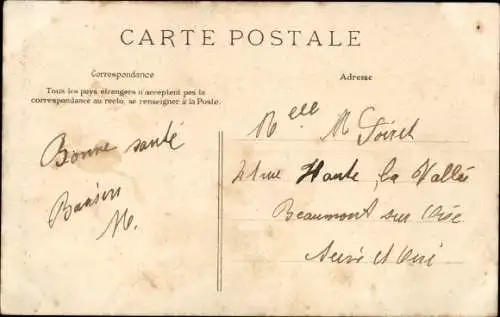 CARTE POSTALE
Correspondance
Tous les pays étrangers n'acceptent pas la
correspondance au recto, se renseigner à la Poste.
Adresse
Bonne santé
M.
Melle M
rue Haute la Vallée
Beaumont sur Oise
Seine et Oise